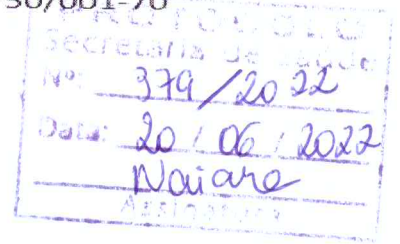 30/001-70
PROTOCOLO
Secretaria de Saúde
Nº: 379/2022
Data: 20/06/2022
Naiara
Assinatura